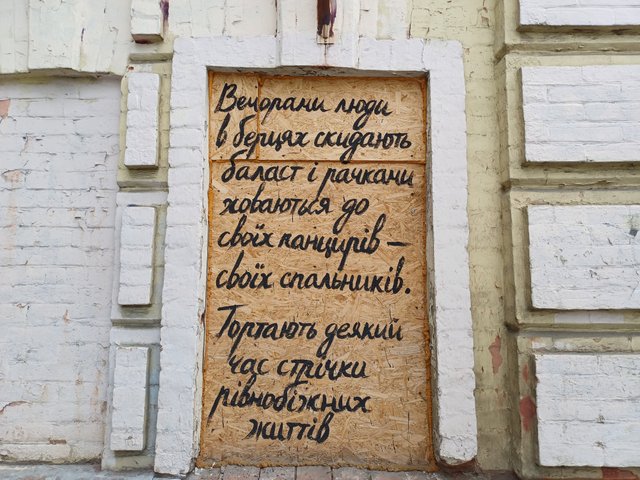 Вечорами люди
в берцях скидають
баласт і рачками
ховаються до
своїх панцирів –
своїх спальників.
Гортають деякий
час стрічки
рівнобіжних
життів